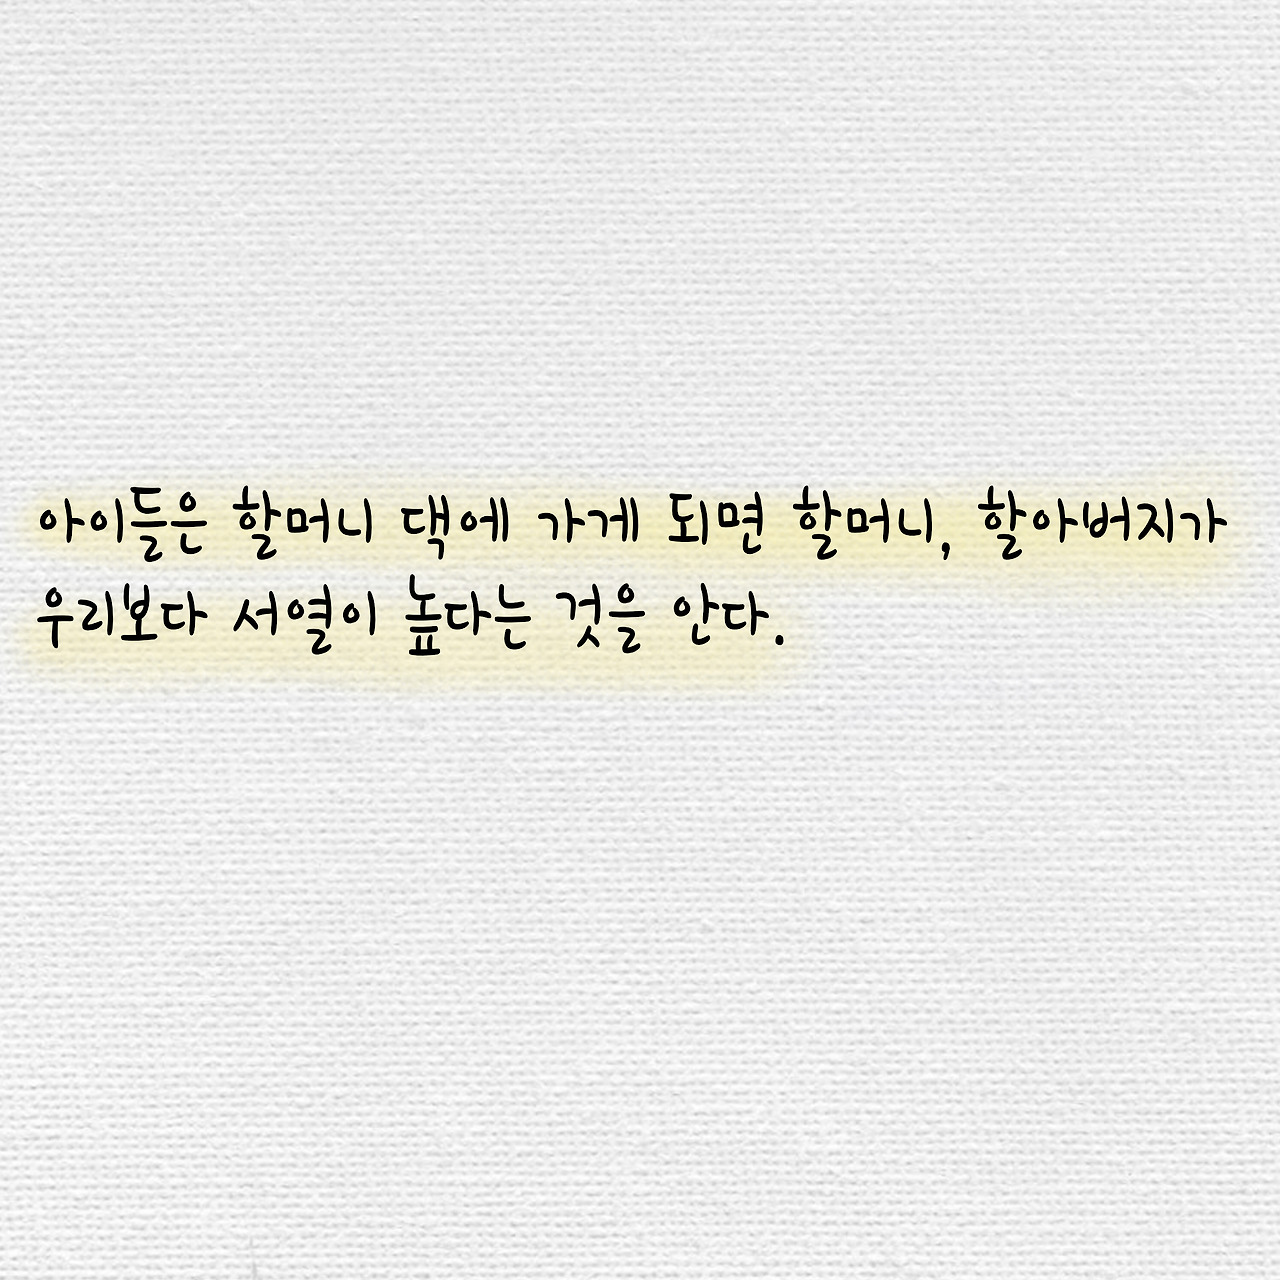 아이들은 할머니 댁에 가게 되면 할머니, 할아버지가
우리보다 서열이 높다는 것을 안다.